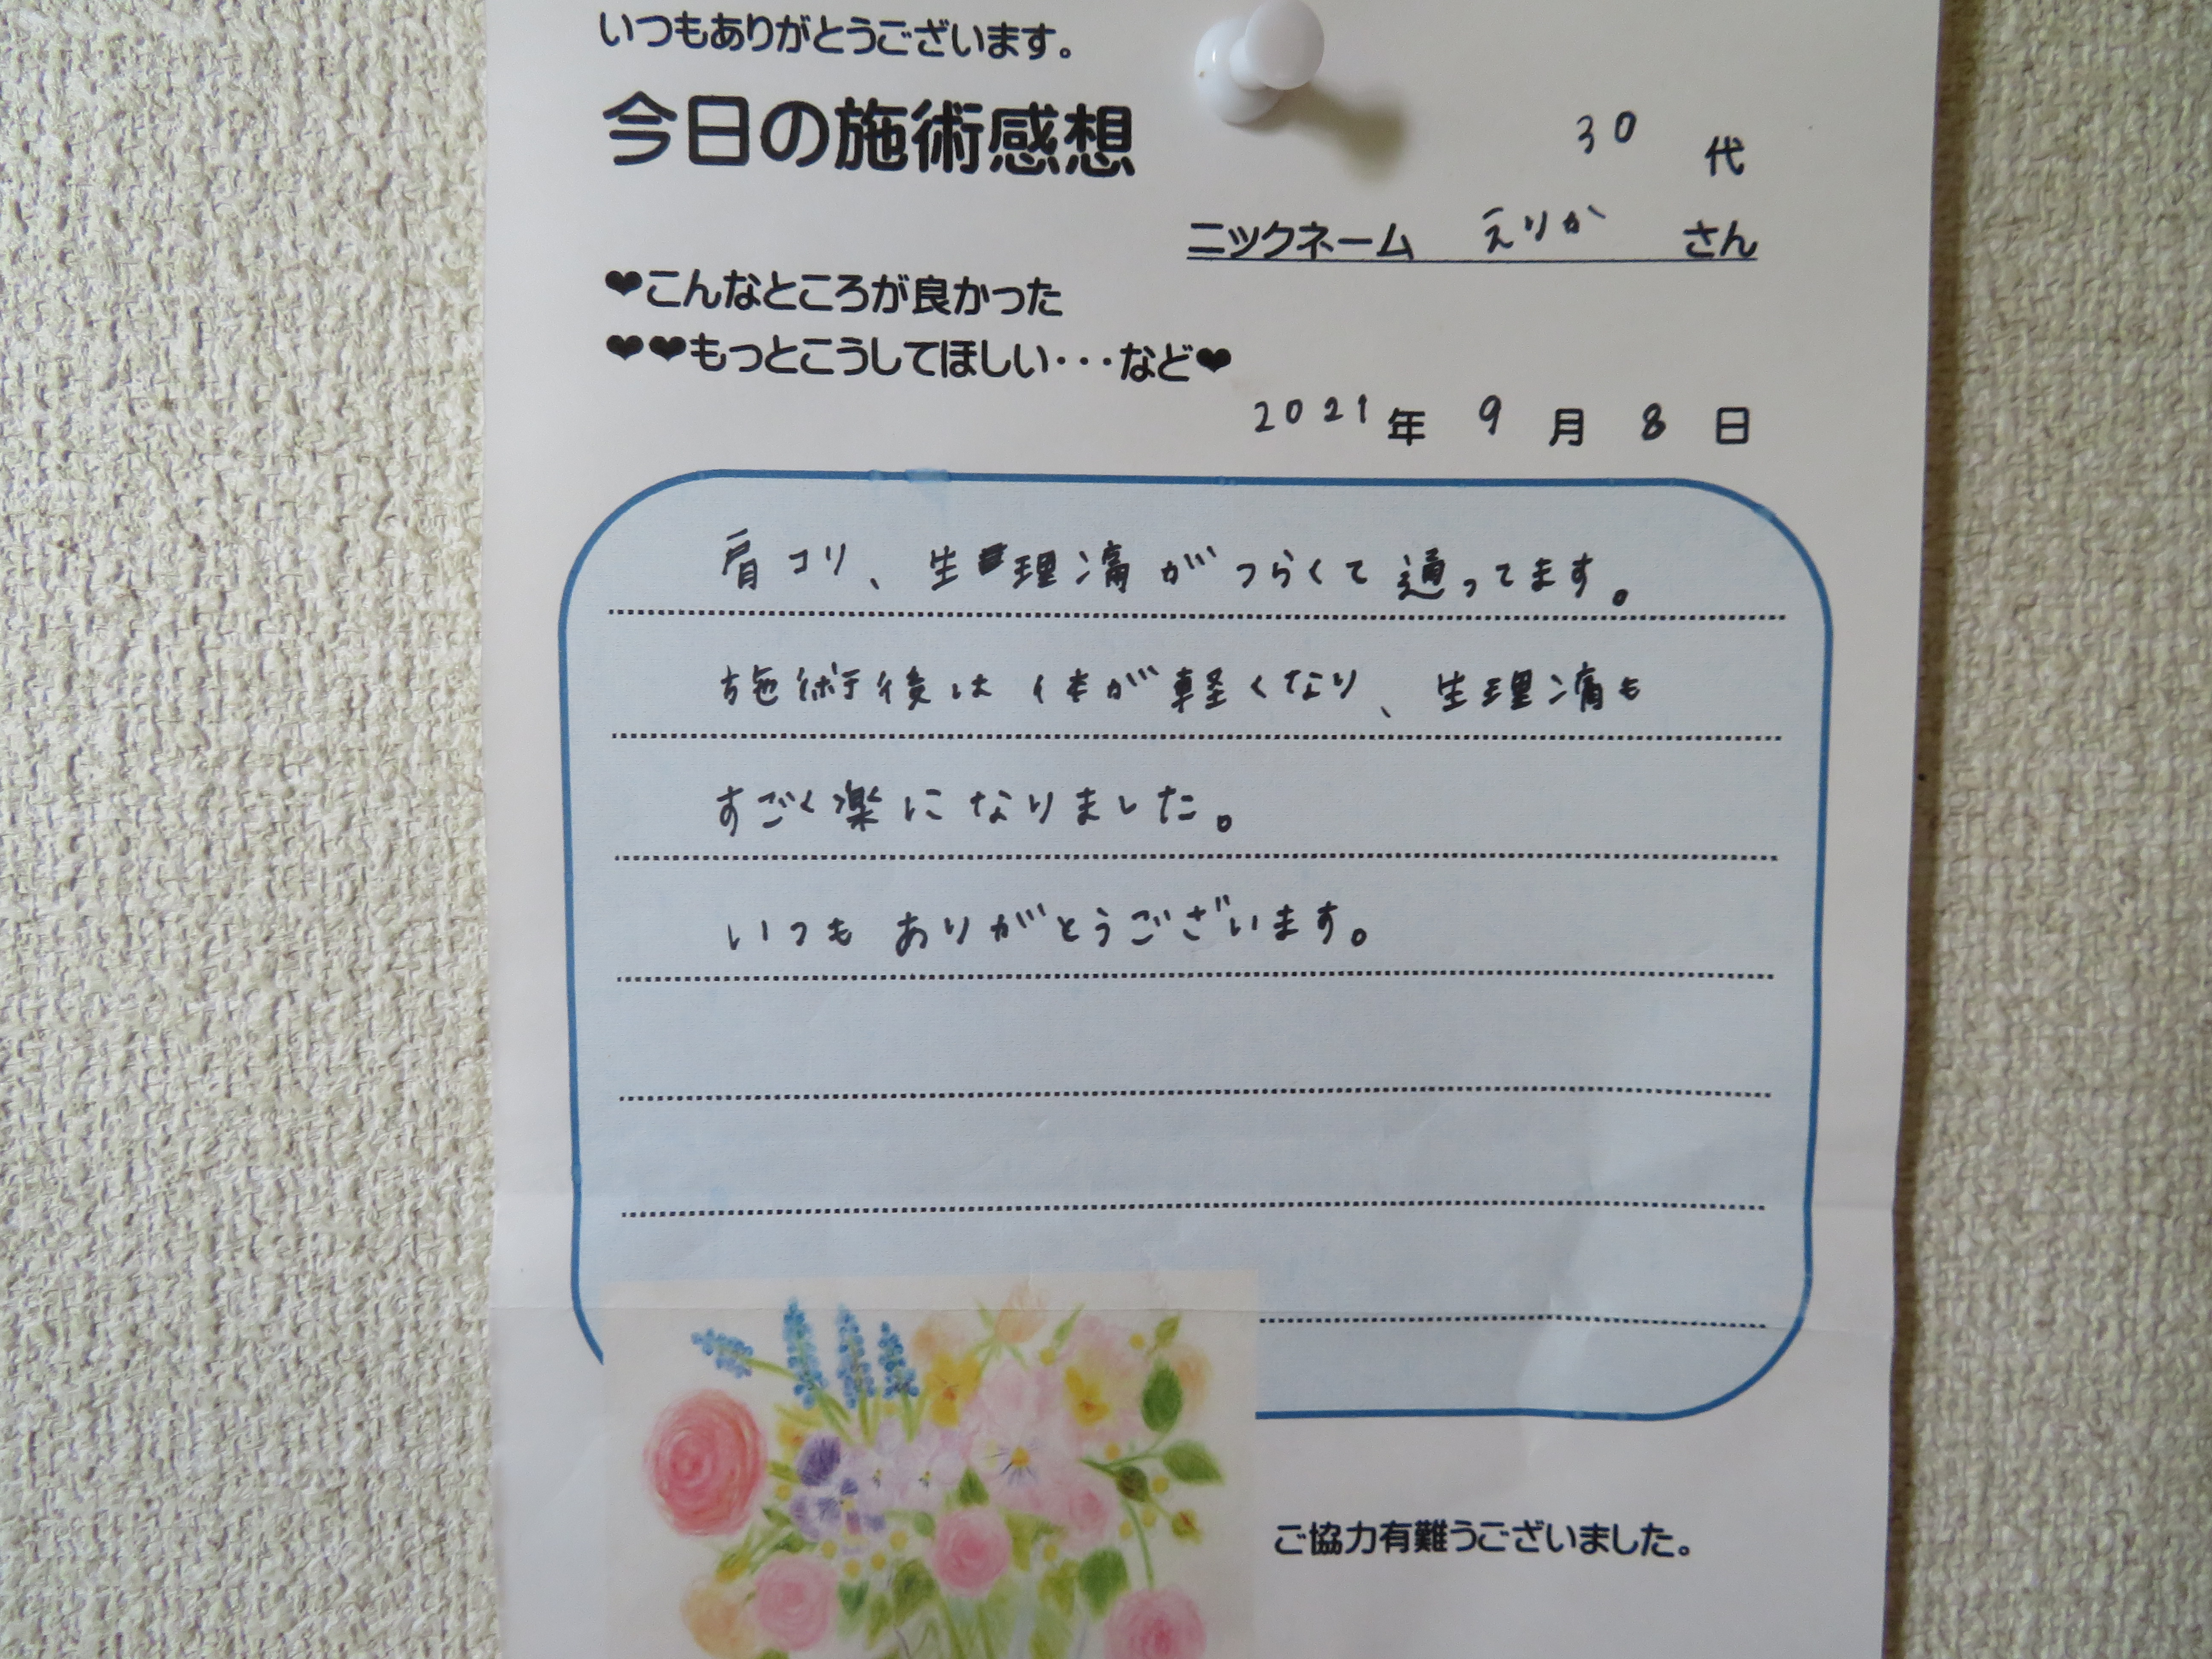 いつもありがとうございます。
今日の施術感想
30 代
ニックネーム えりか さん
❤こんなところが良かった
❤❤もっとこうしてほしい・・・など❤
2021年 9月 8日
肩コリ、生理痛がつらくて通ってます。
施術後は体が軽くなり、生理痛も
すごく楽になりました。
いつもありがとうございます。
ご協力有難うございました。